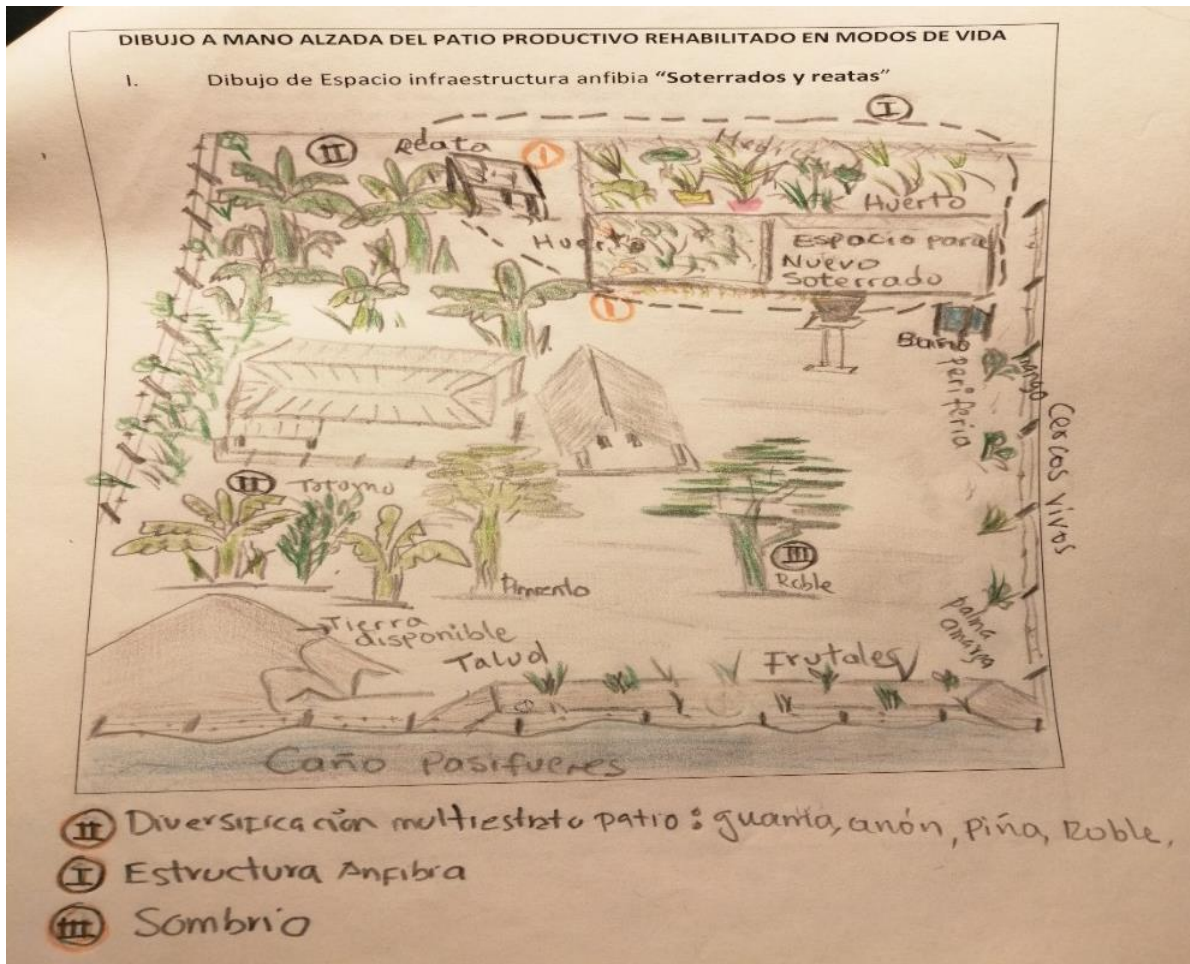 DIBUJO A MANO ALZADA DEL PATIO PRODUCTIVO REHABILITADO EN MODOS DE VIDA
I. Dibujo de Espacio infraestructura anfibia “Soterrados y reatas”
I
II
Reata
1
Huerto
Huerto
Espacio para
Nuevo
Soterrado
Baño
Periferia
Mango
Cercos vivos
II
Totumo
III
Pimiento
Roble
Tierra
disponible
palma
amarga
Talud
Frutales
Caño Pasifueres
II Diversificación multiestrato patio: guama, anón, Piña, Roble,
I Estructura Anfibia
III Sombrio